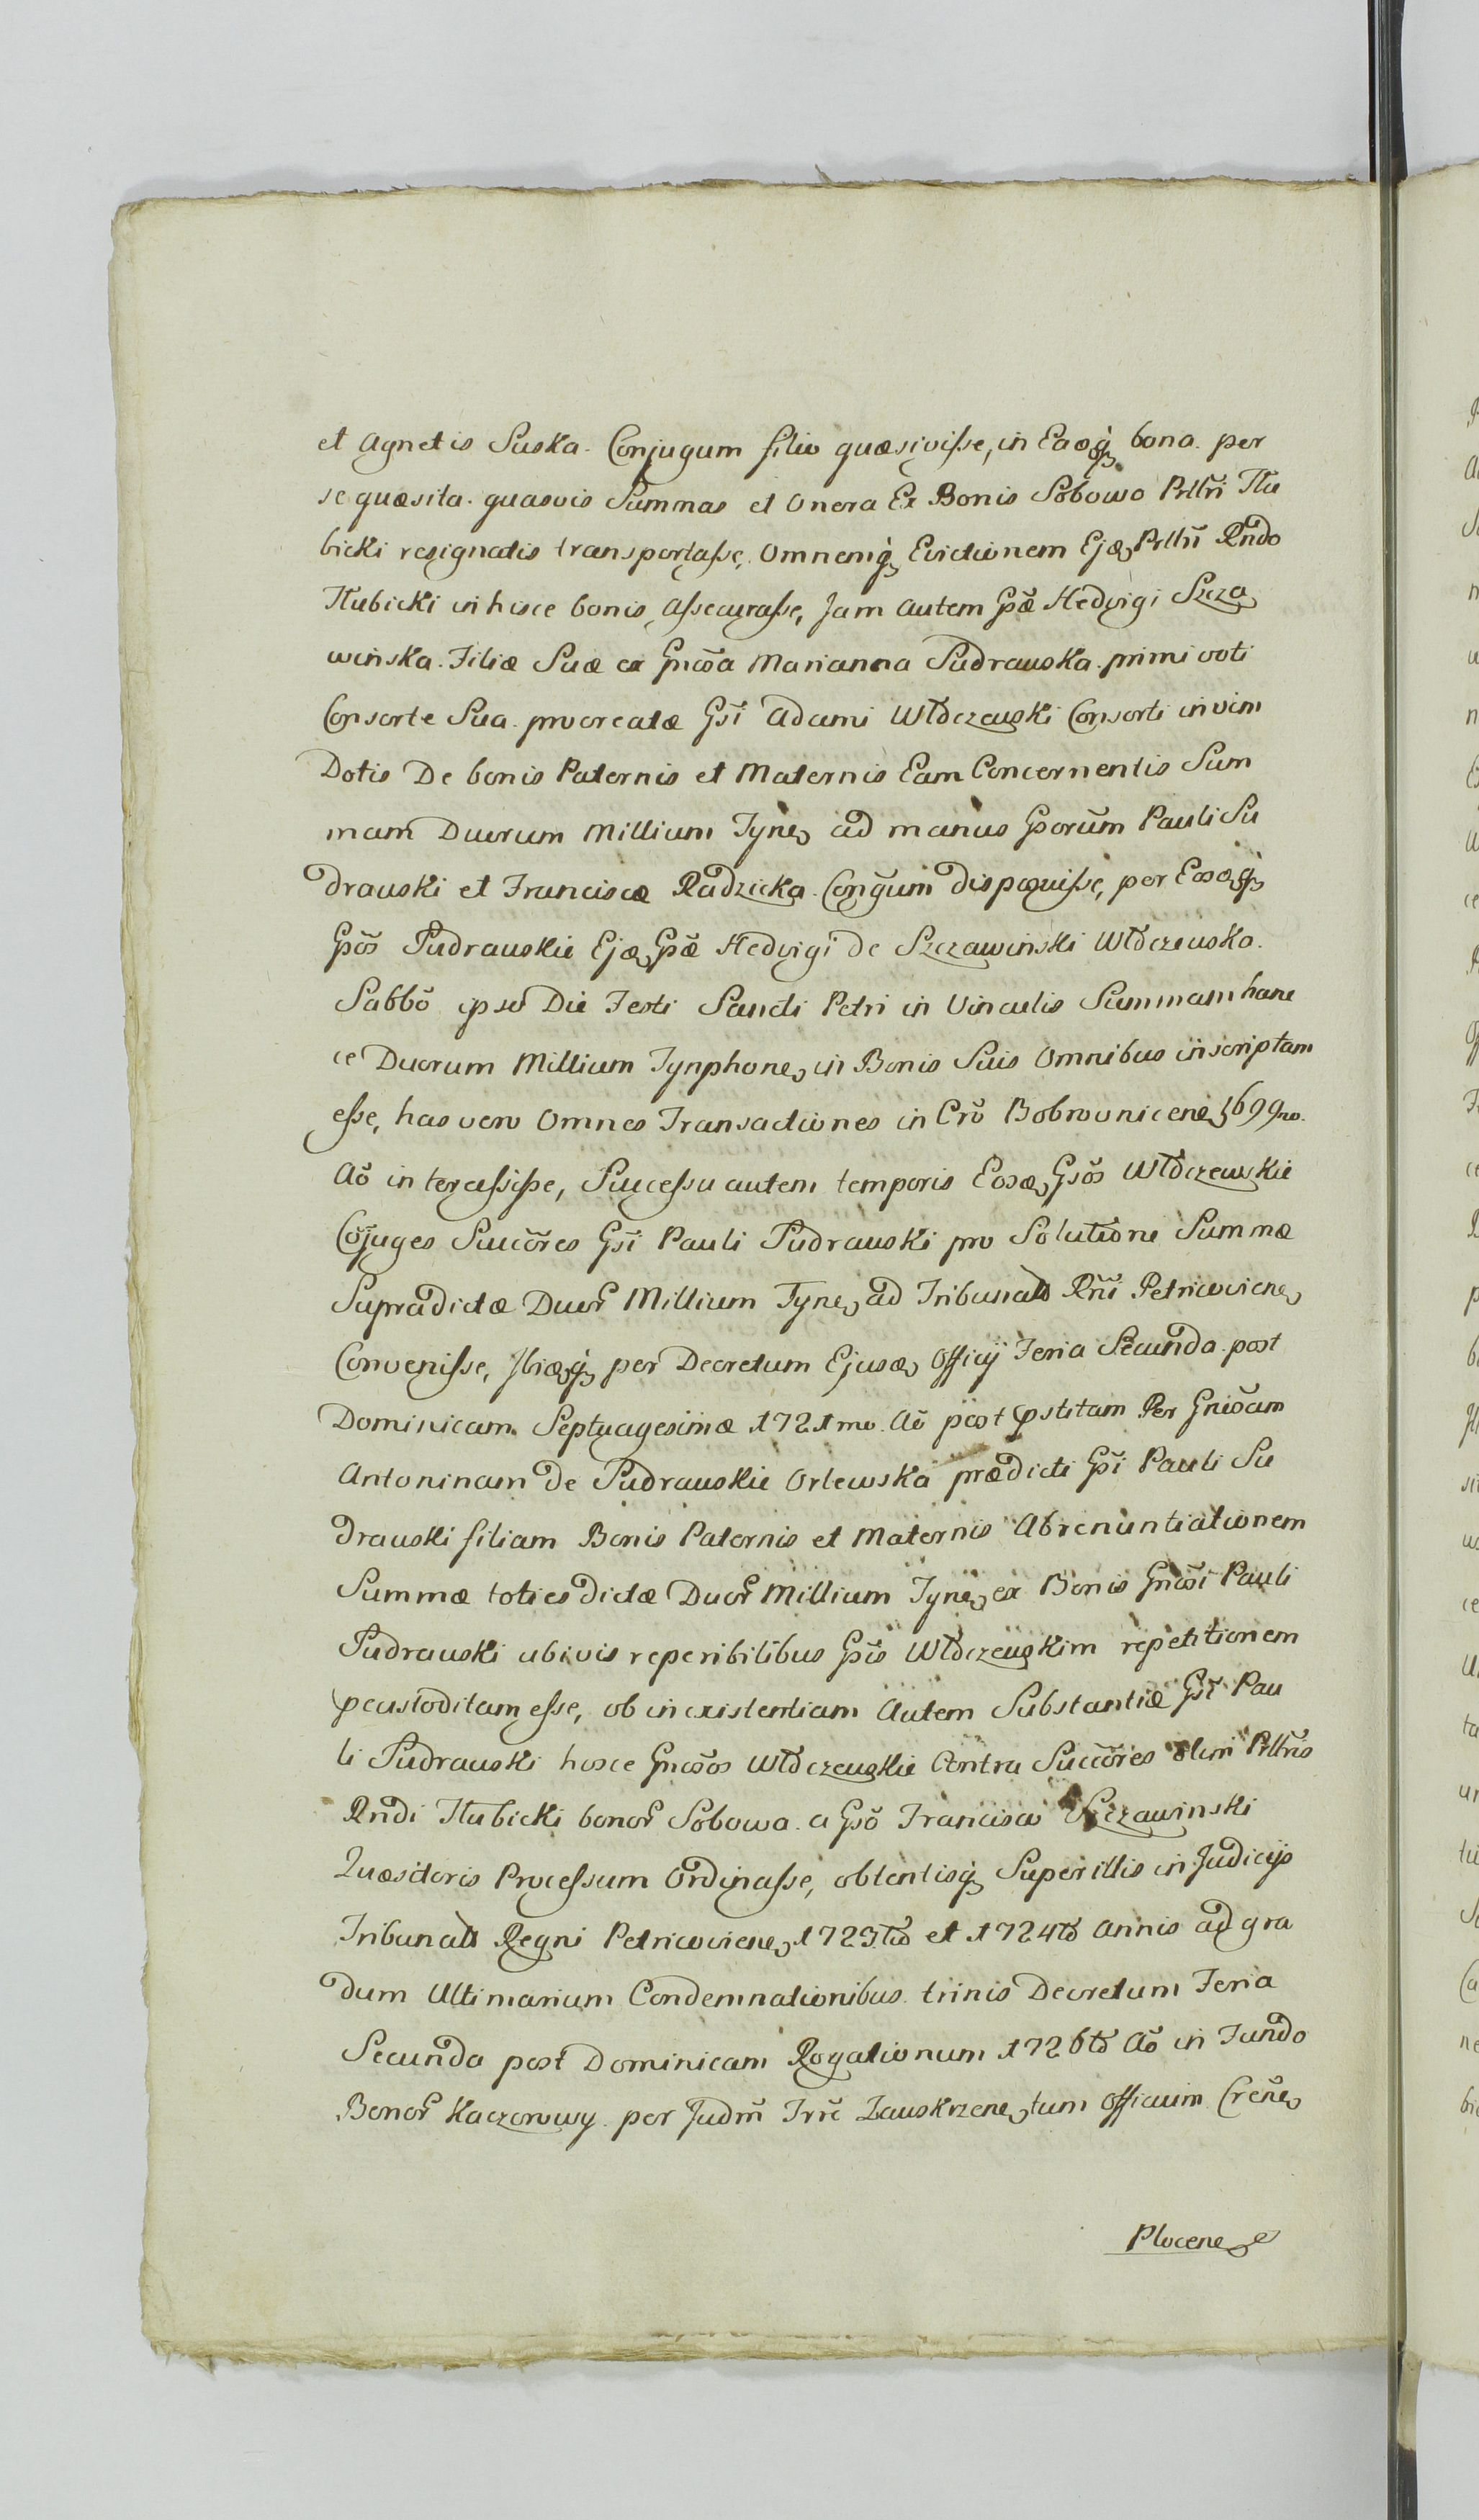 et Agnetis Suska. Conjugum filio quæsivisse, in Eaqȝ bona. per
se quæsita. quasvis Summas et Onera Ex Bonis Sobowo Prltri Tłu
bicki resignatis transportasse, Omnemqȝ Evictionem Ejdȝ Prltri Rndo
Tłubicki in hisce bonis assecurasse, Jam autem Gsæ Hedvigi Szcza
winska. Filiæ Suæ ex Gnosa Marianna Sudrawska. primi voti
Consorte Sua. procreatæ Gsi Adami Włdczewski Consorti in vim
Dotis De bonis Paternis et Maternis Eam Concernentis Sum
mam Duorum Millium Tyneȝ ad manus Gsorum Pauli Su
drawski et Franciscæ Radzicka. Congum disposuisse, per Eosdȝqȝ
Gsos Sudrawskie Ejdȝ Gsæ Hedvigi de Szczawinski Włdczewska.
Sabbo ipso Die Festi Sancti Petri in Vinculis Summam hanc
ce Duorum Millium Tynphoneȝ in Bonis Suis Omnibus inscriptam
esse, has vero Omnes Transactiones in Cro Bobrovniceneȝ 1699no.
Ao intercessisse, Successu autem temporis Eosdȝ Gsos Włdczewskie
Cojuges Succores Gsi Pauli Sudrawski pro Solutione Summæ
Supradictæ Duor Millium Tyneȝ ad Tribunal Rni Petricovieneȝ
Convenisse, Ibidȝqȝ per Decretum Ejusdȝ Officij Feria Secunda. post
Dominicam Septuagesimæ 1721mo. Ao post pstitam Per Gnosam
Antoninam de Sudrawskie Orlewska prædicti Gsi Pauli Su
drawski filiam Bonis Paternis et Maternis Abrenuntiationem
Summæ toties dictæ Duor Millium Tyneȝ ex Bonis Gnosi Pauli
Sudrawski ubivis reperibilibus Gsis Włdczewskim repetitionem
pcustoditam esse, ob inexistentiam Autem Substantiæ Gsi Pau
li Sudrawski hosce Gnosos Włdczewskie Contra Succores olim Prltris
Rndi Tłubicki bonor Sobowa. a Gso Francisco Szczawinski
Quæsitoris Processum Ordinasse, obtentisqȝ Super illis in Judicijs
Tribunal Regni Petricovieneȝ 1723tio et 1724to annis ad gra
dum Ultimarium Condemnationibus. trinis Decretum Feria
Secunda post Dominicam Rogationum 1726to Ao in Fundo
Bonor Kaczorowy. per Judm Trre Zawskrzeneȝ tum Officium Creneȝ
Ploceneȝ